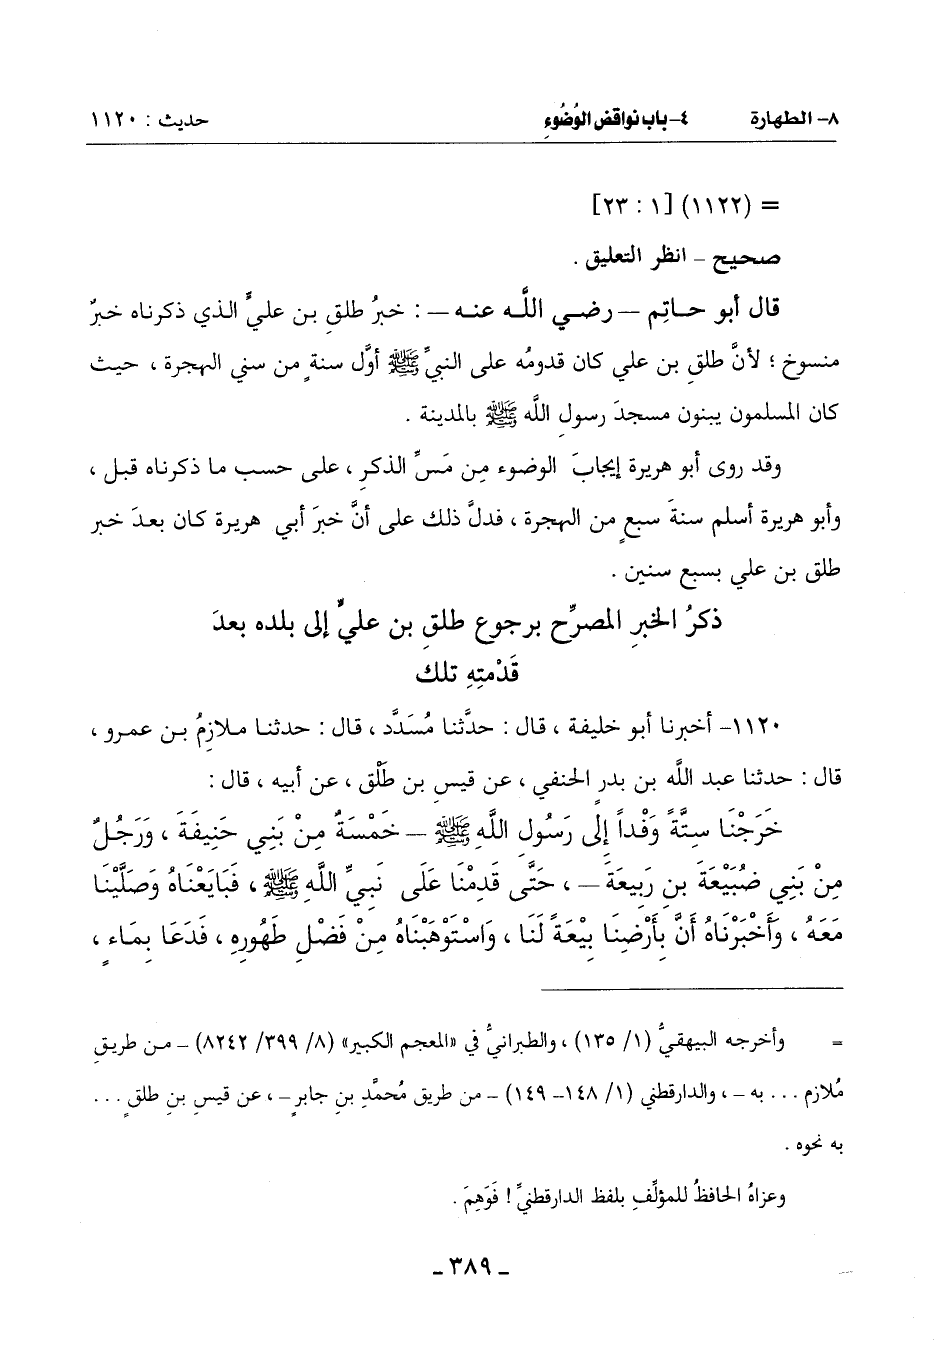 ٨- الطهارة ٤- باب نواقض الوُضُوءِ حديث : ١١٢٠
= (١١٢٢) [١ : ٢٣]
صحيح - انظر التعليق .
قال أبو حـاتِم — رضـي اللَّـه عنـه — : خبرُ طلقِ بـن عليٍّ الذي ذكرناه خبرٌ
منسوخ ؛ لأنَّ طلق بن علي كان قدومُه على النبيِّ ﷺ أوَّل سنةٍ من سني الهجرة ، حيث
كان المسلمون يبنون مسجدَ رسولِ اللَّه ﷺ بالمدينة .
وقد روى أبو هريرة إيجابَ الوضوء مِـن مَسِّ الذكرِ ، على حسب ما ذكرناه قبل ،
وأبو هريرة أسلم سنةَ سبعٍ من الهجرة ، فدلَّ ذلك على أنَّ خبرَ أبي هريرة كان بعدَ خبر
طلق بن علي بسبع سنين .
ذكرُ الخبرِ المصرِّح برجوع طلقِ بن عليٍّ إلى بلده بعدَ
قَدْمتِهِ تلك
١١٢٠- أخبرنا أبو خليفة ، قال : حدَّثنا مُسَدَّد ، قال : حدثنا ملازمُ بـن عمـرو ،
قال : حدثنا عبد اللَّه بن بدرٍ الحنفي ، عن قيسِ بن طَلْق ، عن أبيه ، قال :
خَرَجْنَا سِتَّةً وَفْداً إِلى رَسُولِ اللَّهِ ﷺ — خَمْسَةٌ مِنْ بَنِي حَنِيفَةَ ، وَرَجُلٌ
مِنْ بَنِي ضُبَيْعَةَ بنِ رَبيعَةَ — ، حَتَّى قَدِمْنَا عَلَى نَبيِّ اللَّهِ ﷺ ، فَبَايَعْنَاهُ وَصَلَّيْنَا
مَعَهُ ، وَأَخْبَرْنَاهُ أَنَّ بأَرْضِنَا بيْعَةً لَنَا ، وَاسْتَوْهَبْنَاهُ مِنْ فَضْلِ طَهُورِهِ ، فَدَعَا بمَاءٍ ،
= وأخرجه البيهقيُّ (١/ ١٣٥) ، والطبرانيُّ في «المعجم الكبير» (٨/ ٣٩٩/ ٨٢٤٢) - مـن طريقِ
مُلازم ... به - ، والدارقطني (١/ ١٤٨- ١٤٩) - من طريق مُحمَّدِ بنِ جابرٍ - ، عن قيسِ بنِ طلقٍ ...
به نحوه .
وعزاهُ الحافظُ للمؤلِّفِ بلفظ الدارقطنيِّ ! فَوَهِمَ .
- ٣٨٩ -